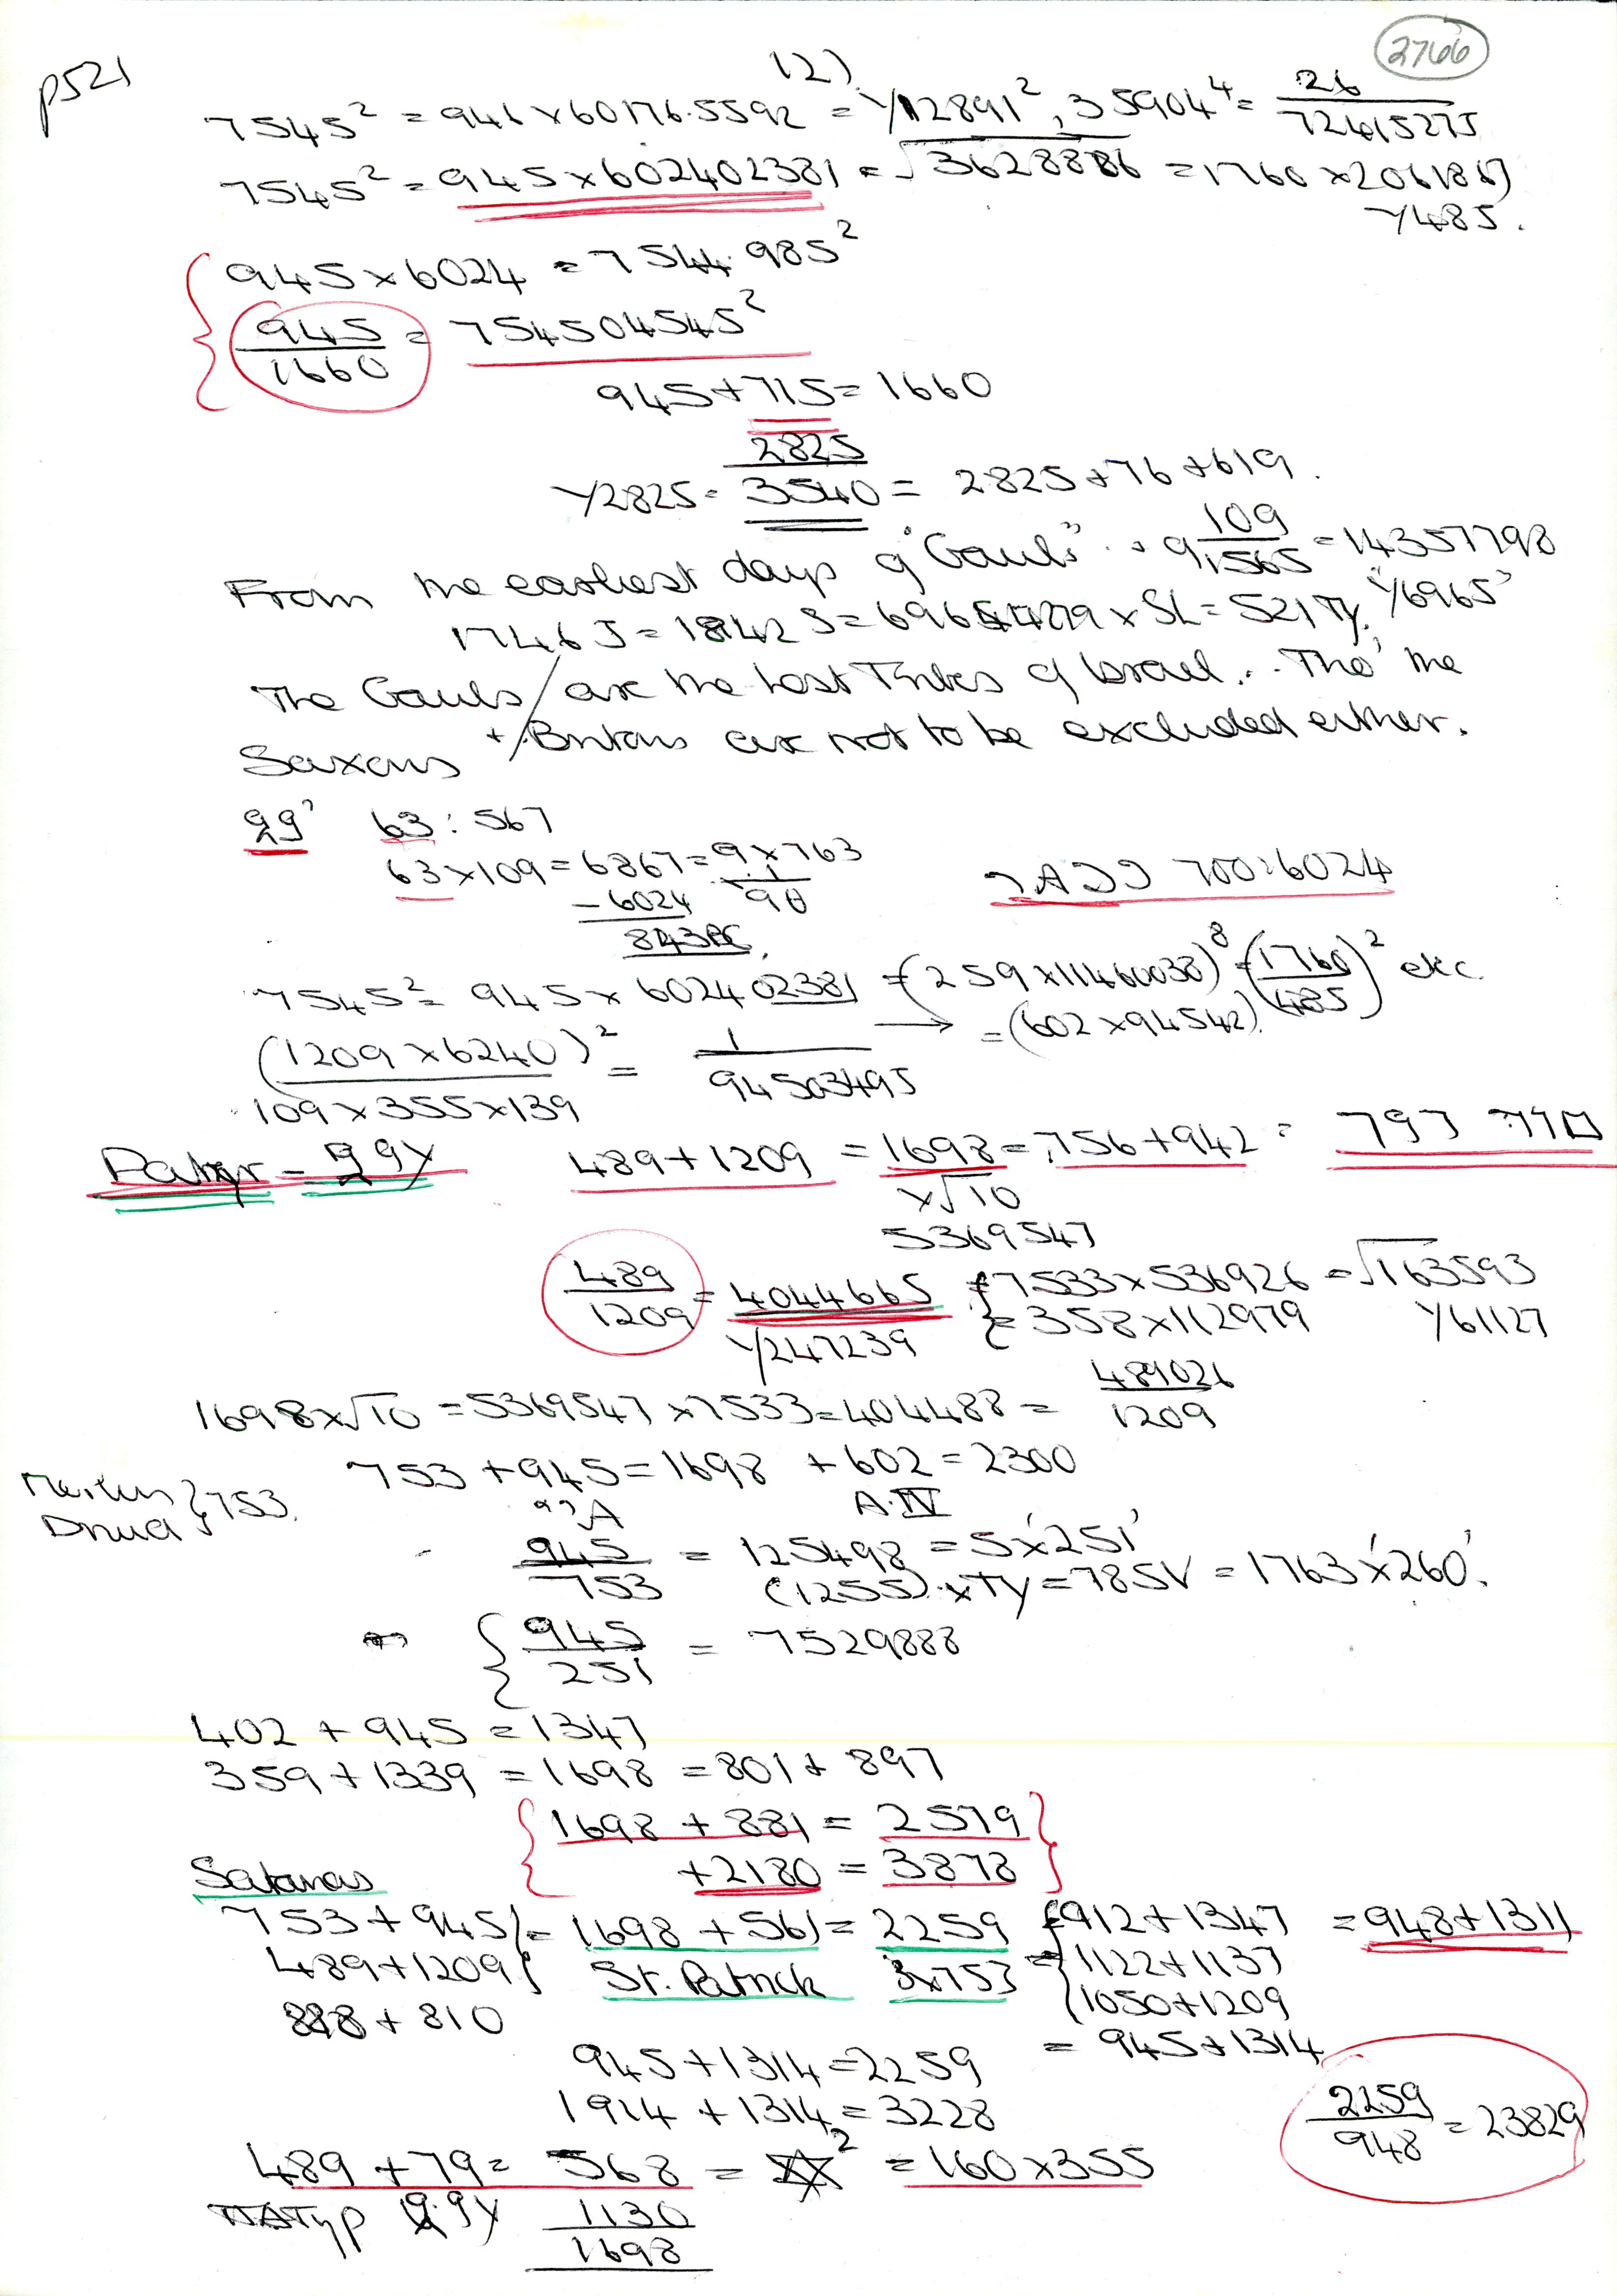 2766
p521
12)
7545² = 946 x 60176.5592 = Y12891², 35904⁴ = 26/72415275
7545² = 945 x 602402381 = √3628886 = 1760 x 2061867
Y485.
945 x 6024 = 7544.985²
945/1660 = 754504545²
945 + 715 = 1660
Y2825 = 2825/3540 = 2825 + 76 + 619.
From the earliest days of "Gaul" .. 9 109/1565 = 14357798
1746 J = 1842 S = 69654279 x SL = 521 Ty. Y6965'
The Gauls / are the Lost Tribes of Israel... Tho' the
Saxons + / Britons are not to be excluded either.
99' 63 : 567
63 x 109 = 6867 = 9 x 763
- 6024
843 BC.
700:6024
7545² = 945 x 602402381 = (259 x 11460038)⁸ = (1760/485)² etc.
(1209 x 6240/109 x 355 x 139)² = 1/94503495 → = (602 x 94542).
489 + 1209 = 1698 = 756 + 942 =
x √10
5369547
489/1209 = 4044665 { = 7533 x 536926 = √163593
Y247239 { = 358 x 112979 Y61127
1698 x √10 = 5369547 x 7533 = 404488 = 489026/1209
753 + 945 = 1698 + 602 = 2300
Merlin } 753.
Druid
A. IV
945/753 = 125498 = 5 x '251'
(1255) x Ty = 785V = 1763 x '260'.
{ 945/251 = 7529888
402 + 945 = 1347
359 + 1339 = 1698 = 801 + 897
{ 1698 + 881 = 2579 }
+ 2180 = 3878
Satanas
753 + 945 } = 1698 + 561 = 2259 { = 912 + 1347 = 948 + 1311
489 + 1209 } St. Patrick 3x753 = { 1122 + 1137
888 + 810 { 1050 + 1209
= 945 + 1314
945 + 1314 = 2259
1914 + 1314 = 3228
2259/948 = 23829
489 + 79 = 568 = ² = 160 x 355
1130
1698